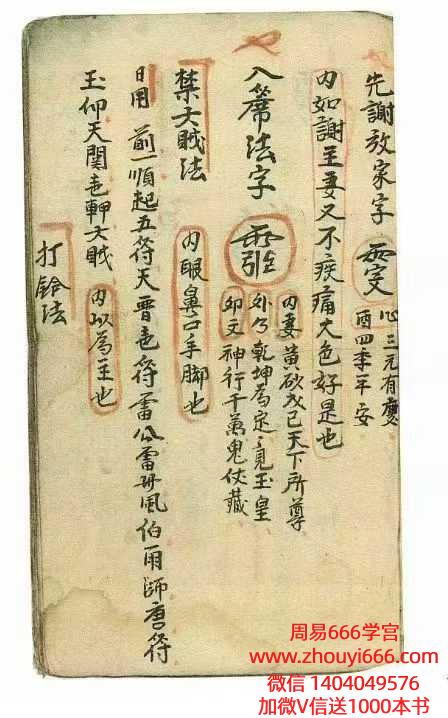 先謝放家字
心三元有慶
酉四季平安
内如謝主妾又不疾痛大色好是也
入席法字
内妻黄砂戊己天下所尊
外勺乾坤為定竟玉皇
卯文神行千萬鬼伏藏
禁大賊法
内眼鼻口手脚也
日用前一順起五符天晋走符雷公雷母風伯雨師唐符
玉仰天關走大賊
内以為主也
打鎗法
周易666学宫
www.zhouyi666.com
微信 1404049576
加微V信送1000本书